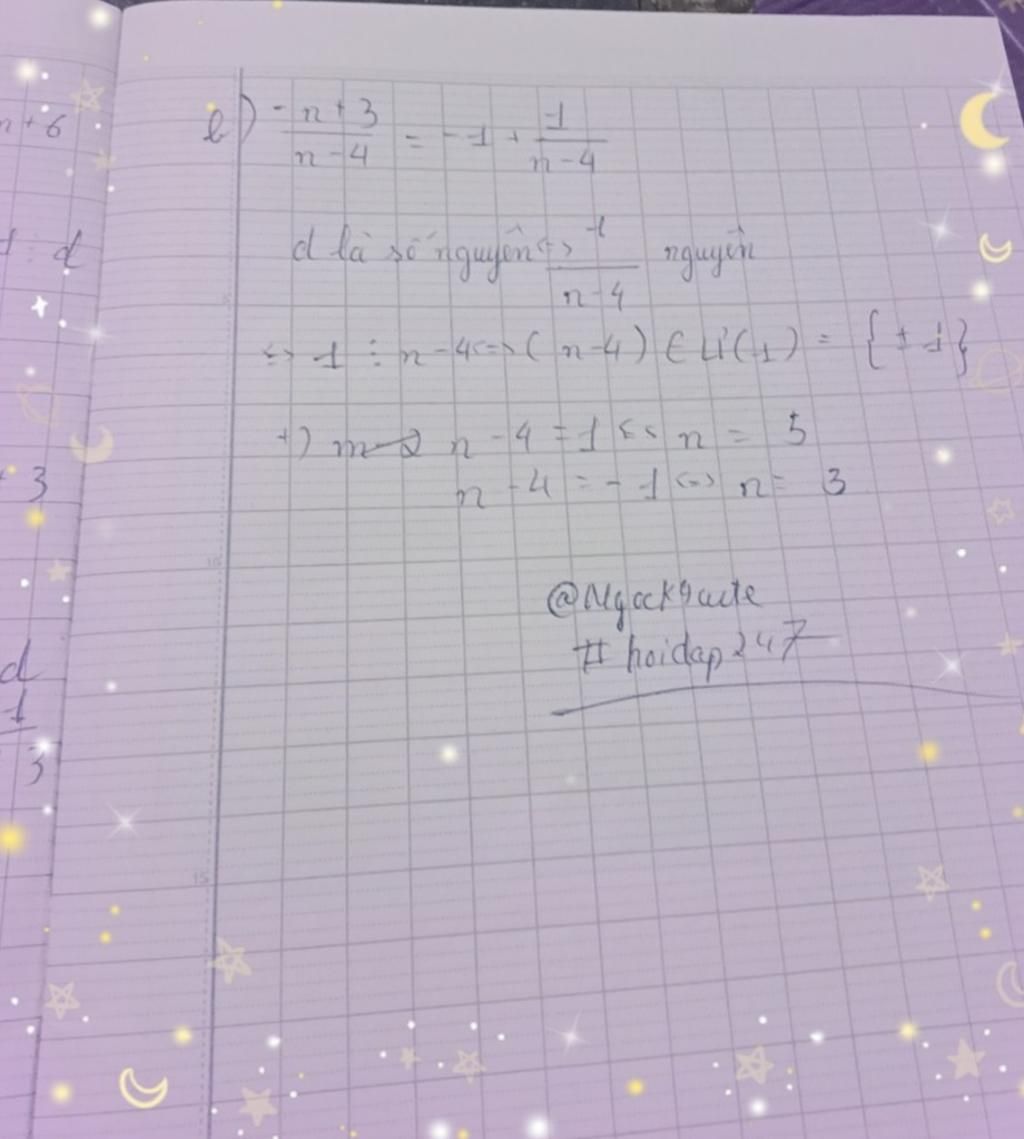 n+6
1 ⋮ d
3
d
1
3
b) -n+3/n-4 = -1 + -1/n-4
d là số nguyên <=> -1/n-4 nguyên
<=> 1 ⋮ n-4 <=> (n-4) ∈ Ư(1) = {±1}
+) n-4 = 1 <=> n = 5
n-4 = -1 <=> n = 3
@Ngock9cute
#hoidap247